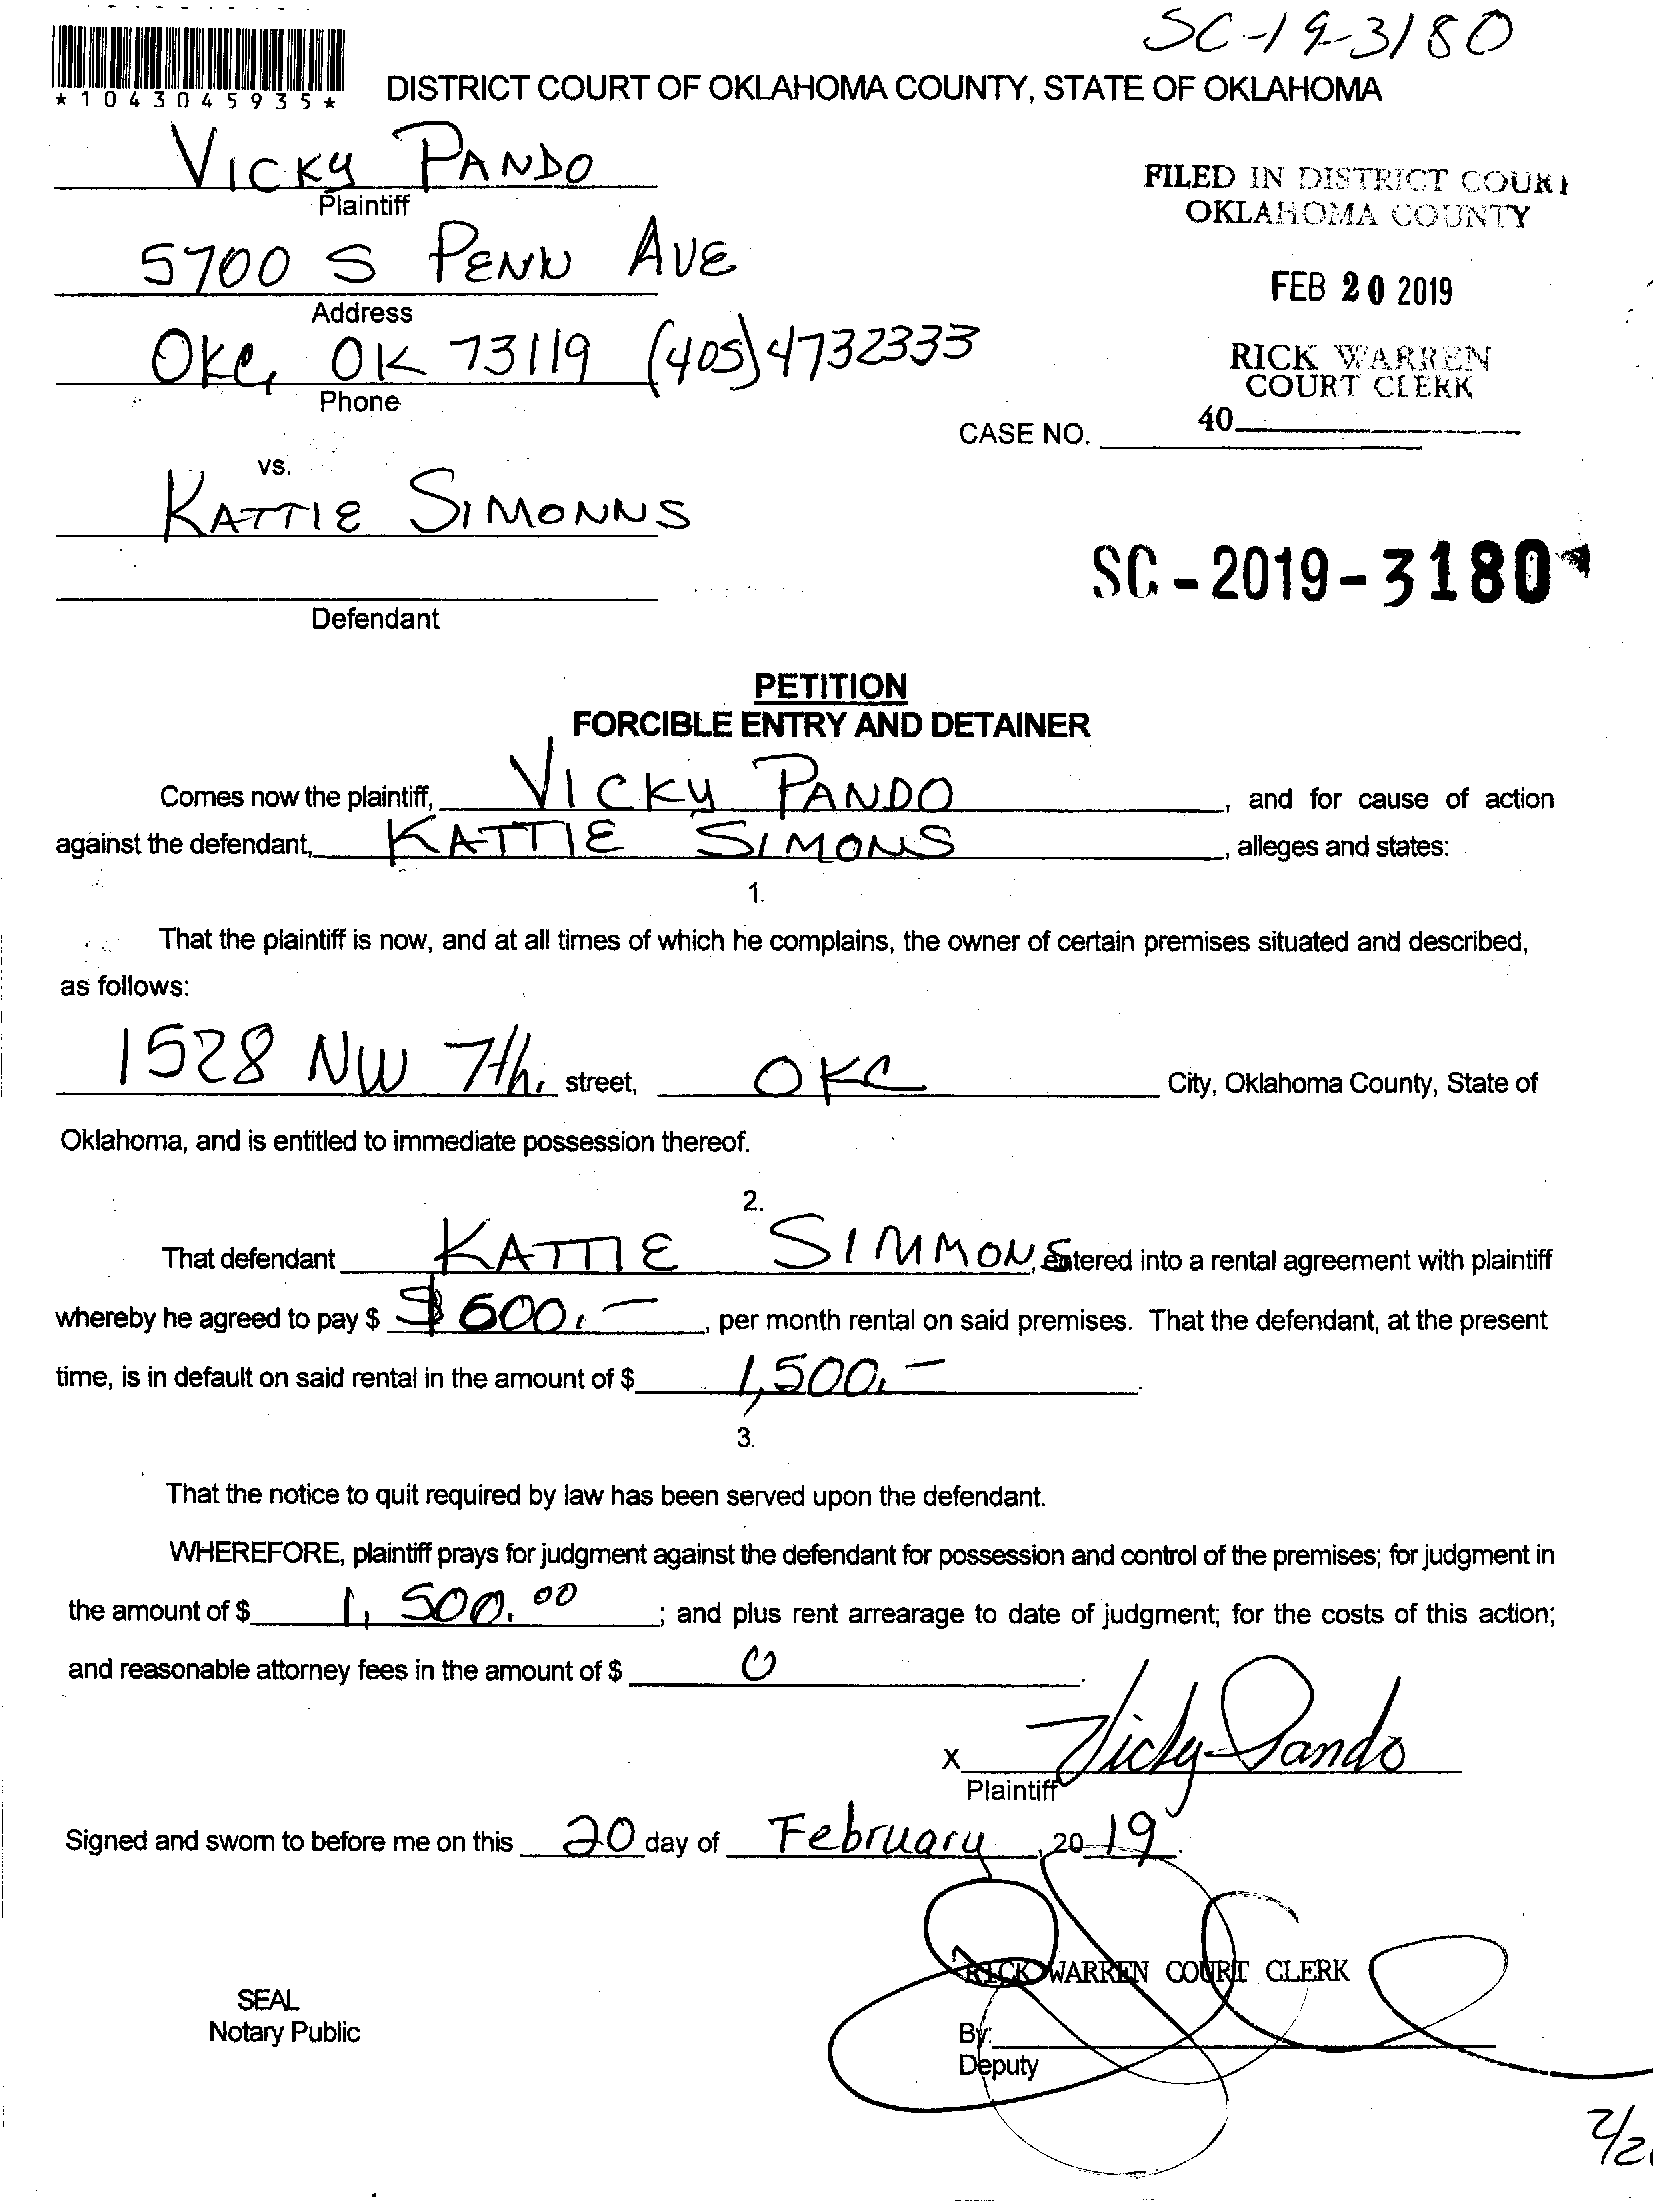 SC-19-3180
*1043045935*
DISTRICT COURT OF OKLAHOMA COUNTY, STATE OF OKLAHOMA
VICKY PANDO
Plaintiff
FILED IN DISTRICT COURT
OKLAHOMA COUNTY
5700 S PENN AVE
Address
FEB 20 2019
OKC, OK 73119 (405)4732333
Phone
RICK WARREN
COURT CLERK
40
CASE NO.
vs.
KATTIE SIMONNS
SC-2019-3180
Defendant
PETITION
FORCIBLE ENTRY AND DETAINER
Comes now the plaintiff, VICKY PANDO, and for cause of action
against the defendant, KATTIE SIMONS, alleges and states:
1.
That the plaintiff is now, and at all times of which he complains, the owner of certain premises situated and described,
as follows:
1528 NW 7th. street, OKC City, Oklahoma County, State of
Oklahoma, and is entitled to immediate possession thereof.
2.
That defendant KATTIE SIMMONS, entered into a rental agreement with plaintiff
whereby he agreed to pay $ $600.-, per month rental on said premises. That the defendant, at the present
time, is in default on said rental in the amount of $ 1,500.-.
3.
That the notice to quit required by law has been served upon the defendant.
WHEREFORE, plaintiff prays for judgment against the defendant for possession and control of the premises; for judgment in
the amount of $ 1,500.00; and plus rent arrearage to date of judgment; for the costs of this action;
and reasonable attorney fees in the amount of $ 0.
x Vicky Pando
Plaintiff
Signed and sworn to before me on this 20 day of February, 2019.
RICK WARREN COURT CLERK
SEAL
Notary Public
By:
Deputy